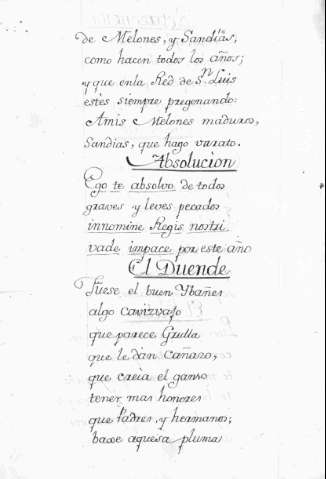 de Melones, y Sandías,
como hacen todos los años;
y que enla Red de Sn. Luis
estès siempre pregonando:
Amis Melones maduros,
Sandias, que hago varato.
Absolucion
Ego te absolvo de todos
graves y leves pecados
innomine Regis nostri
vade impace por este año
El Duende
Fuese el buen Ybañes
algo carizvajo
que parece Grulla
que le dàn Cañazo,
que creia el ganso
tener mas honores
que Padres, y hermanos;
baxe aquesa pluma